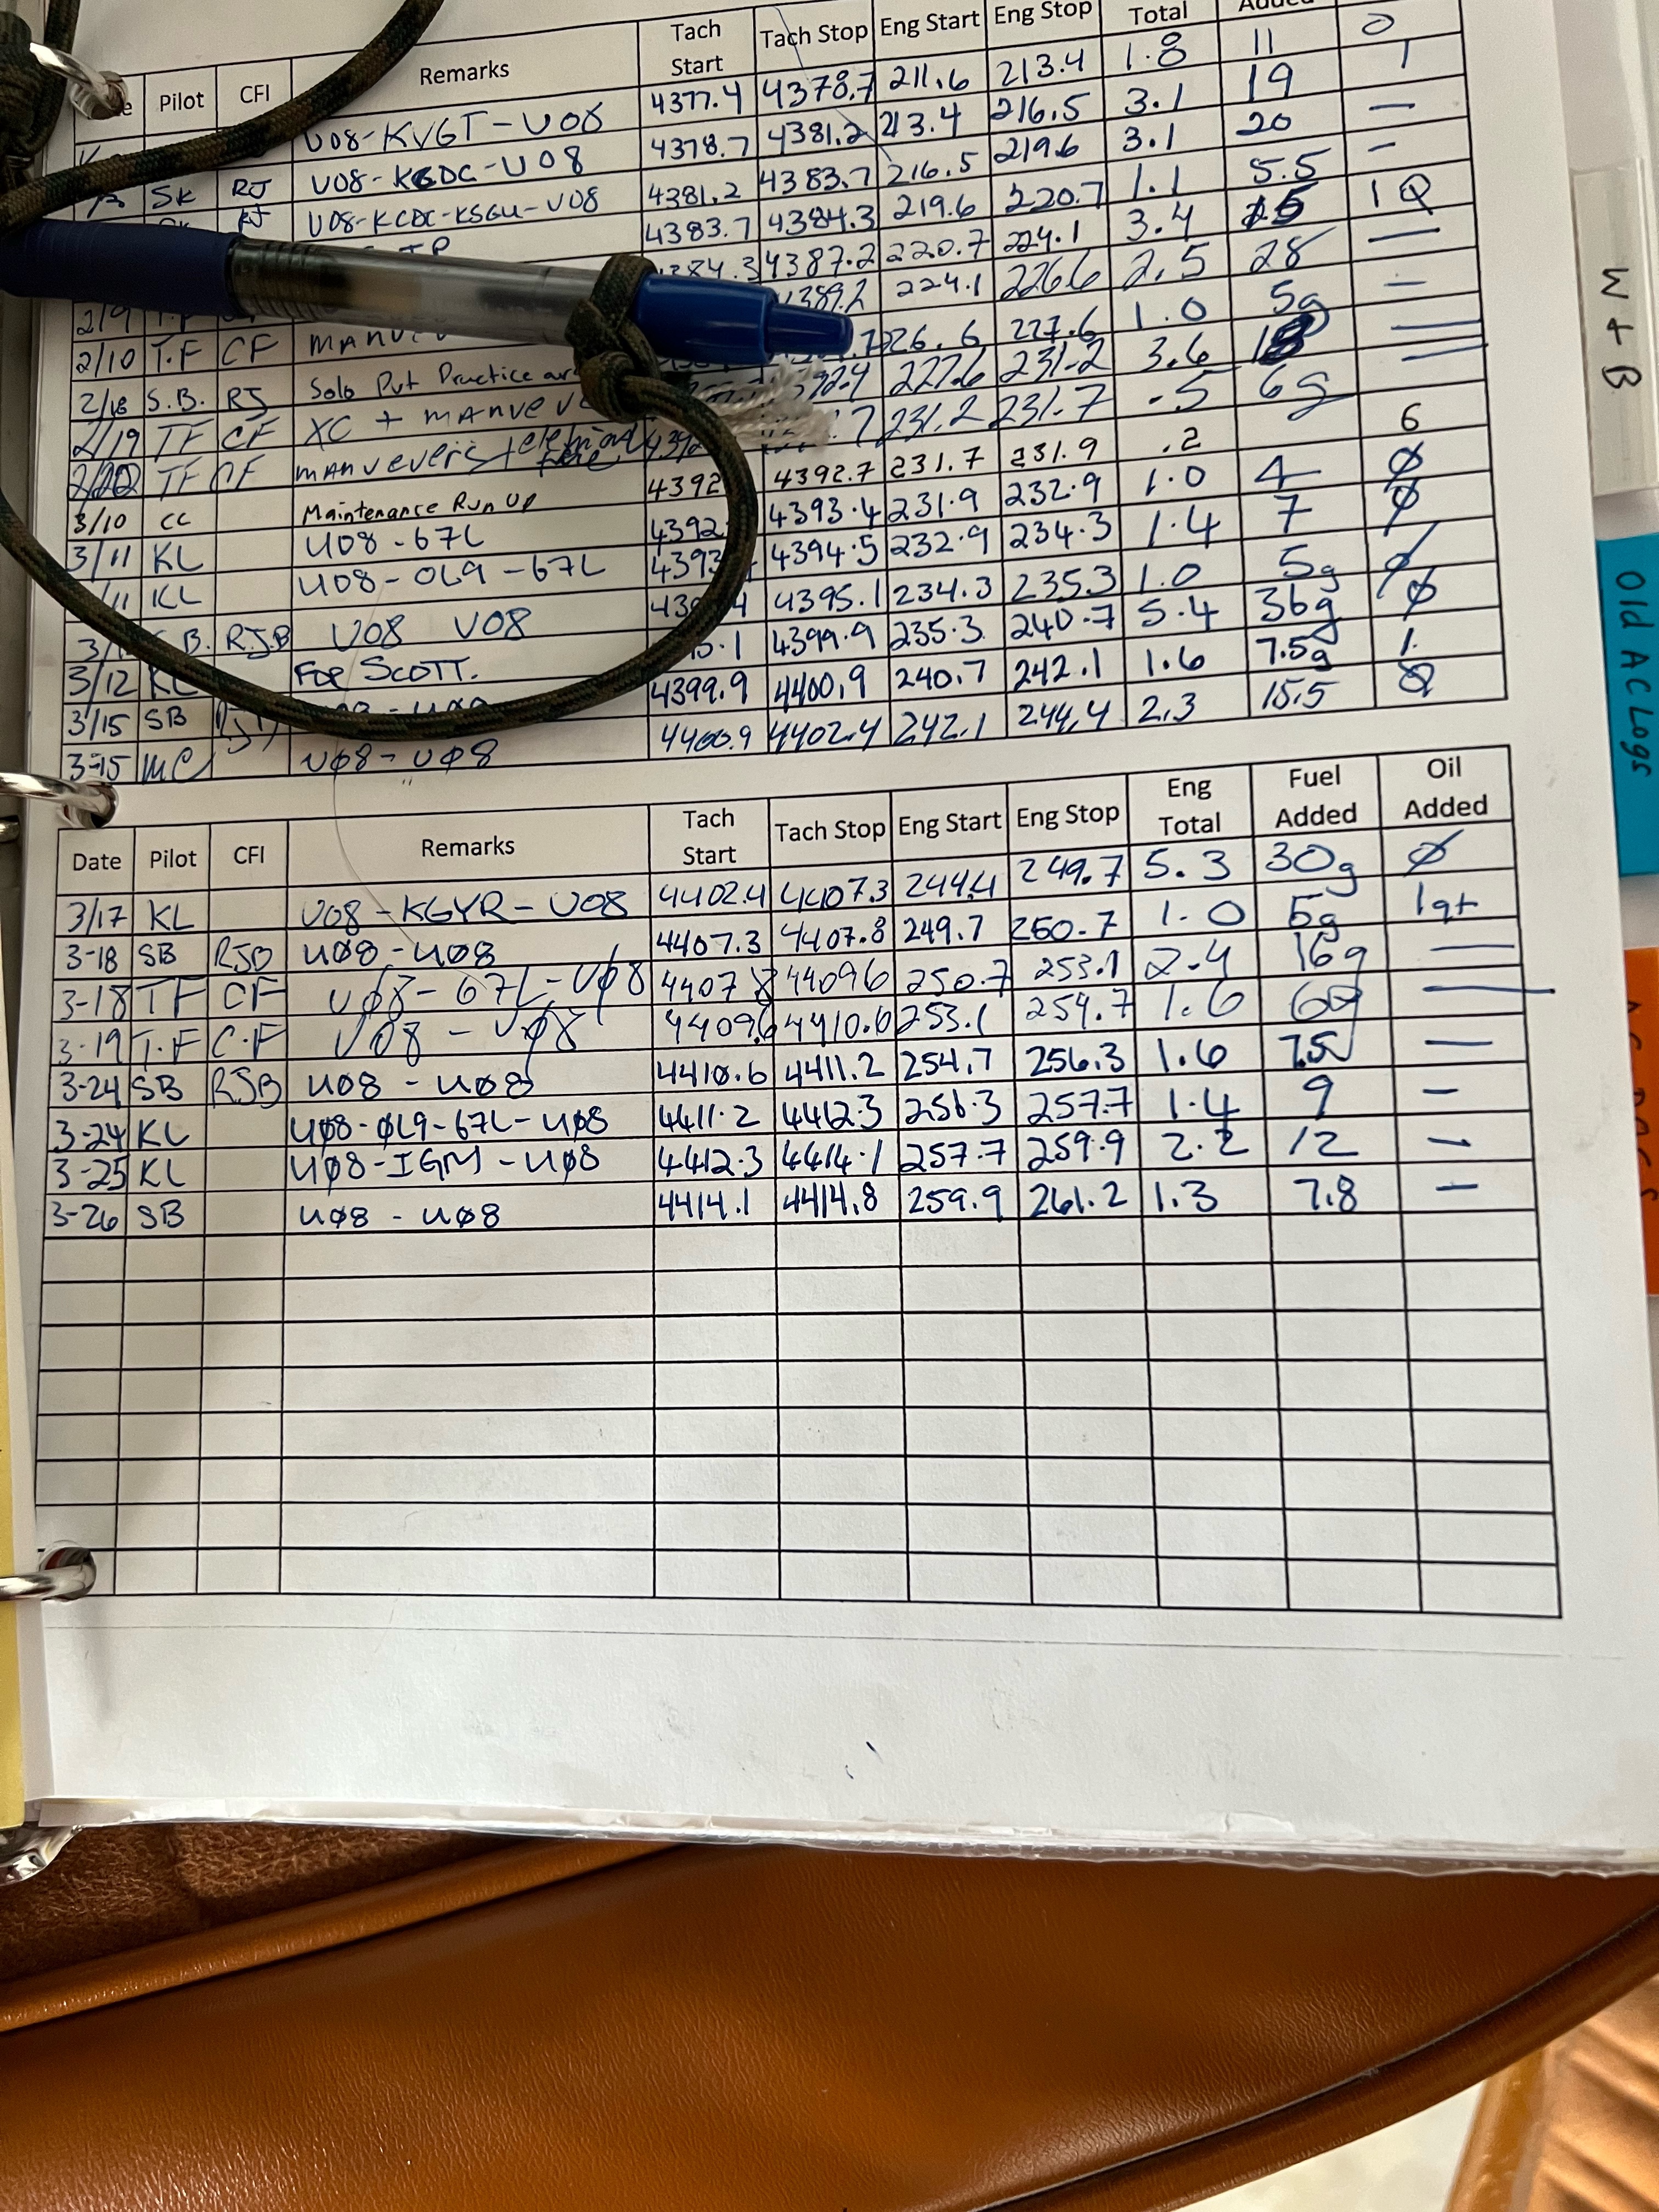 Tach Start Tach Stop Eng Start Eng Stop Total
Pilot CFI Remarks
U08-KVGT-U08 4377.4 4378.7 211.6 213.4 1.8 11 0
SK RJ U08-KCDC-U08 4378.7 4381.2 213.4 216.5 3.1 19 1
RJ U08-KCDC-KSGU-U08 4381.2 4383.7 216.5 219.6 3.1 20 —
4383.7 4384.3 219.6 220.7 1.1 5.5 —
2/9 4387.2 220.7 224.1 3.4 1Q
2/10 T.F CF 224.1 226.6 2.5 28 —
2/18 S.B. RJ Solo Put Practice 226.6 227.6 1.0 5g —
2/19 TF CF XC + 227.6 231.2 3.6 18
TF CF 231.2 231.7 .5 6g
3/10 CC Maintenance Run Up 4392.7 231.7 231.9 .2 6
3/11 KL U08-67L 4393.4 231.9 232.9 1.0 4 Ø
KL U08-0L9-67L 4394.5 232.9 234.3 1.4 7 Ø
R.J.B U08 U08 4395.1 234.3 235.3 1.0 5g Ø
3/12 KL For SCOTT. 4399.9 235.3 240.7 5.4 36g Ø
3/15 SB 4399.9 4400.9 240.7 242.1 1.6 7.5g 1.
3-15 MC UØ8-UØ8 4400.9 4402.4 242.1 244.4 2.3 15.5 Ø
Date Pilot CFI Remarks Tach Start Tach Stop Eng Start Eng Stop Eng Total Fuel Added Oil Added
3/17 KL U08-KGYR-U08 4402.4 4407.3 244.4 249.7 5.3 30g Ø
3-18 SB RJB UØ8-UØ8 4407.3 4407.8 249.7 250.7 1.0 5g 1qt
3-18 TF CF UØ8-67L-UØ8 4407.8 4409.6 250.7 253.1 2.4 16g —
3-19 T.F C.F U08 - UØ8 4409.6 4410.6 253.1 254.7 1.6 —
3-24 SB RJB U08 - UØ8 4410.6 4411.2 254.7 256.3 1.6 7.5 —
3-24 KL UØ8-ØL9-67L-UØ8 4411.2 4412.3 256.3 257.7 1.4 9 —
3-25 KL UØ8-IGM-UØ8 4412.3 4414.1 257.7 259.9 2.2 12 —
3-26 SB UØ8 - UØ8 4414.1 4414.8 259.9 261.2 1.3 7.8 —
W + B
Old AC Logs